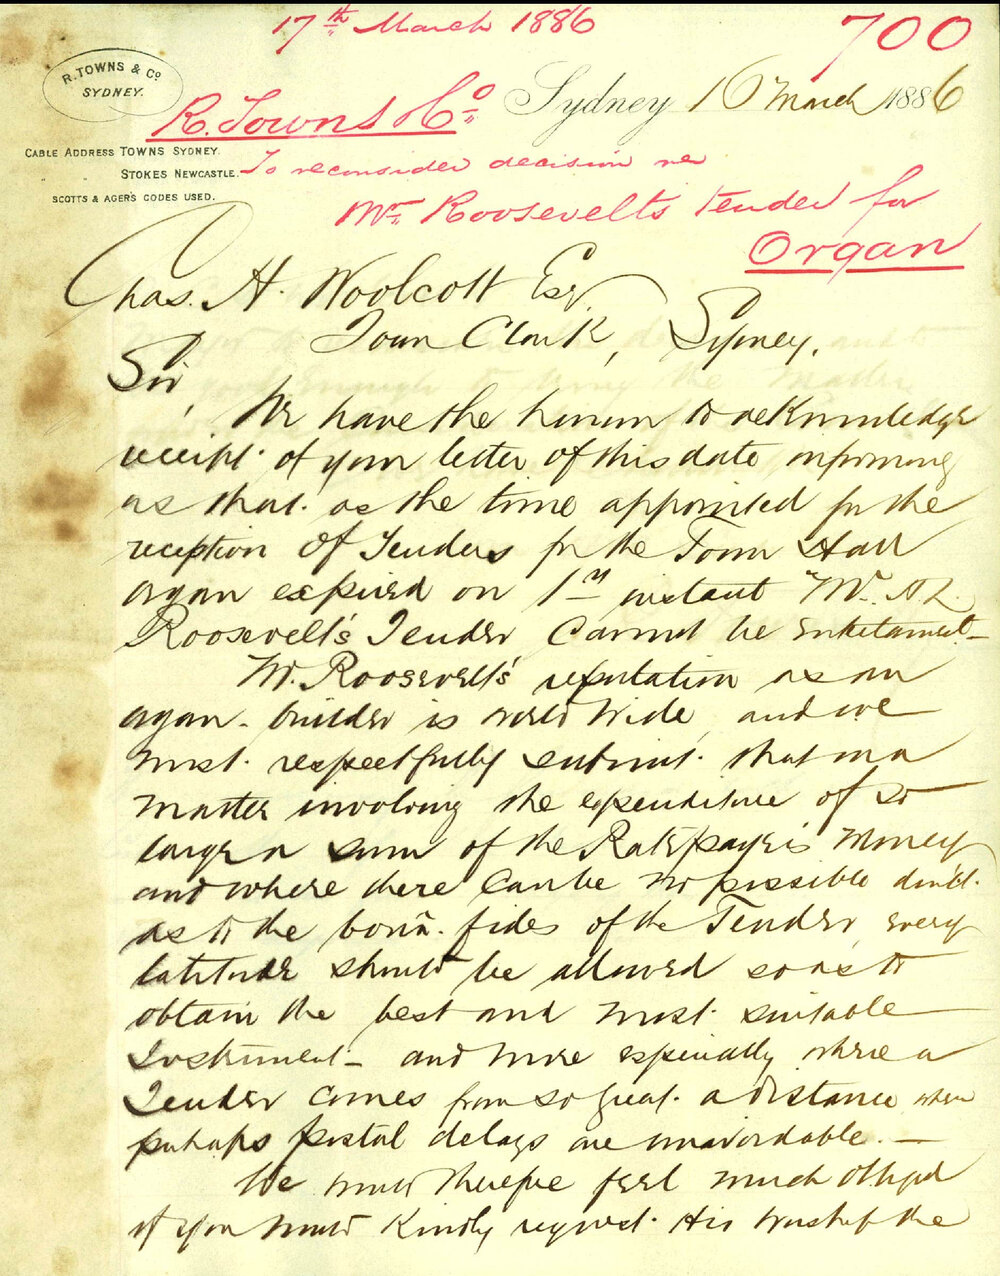 17th March 1886
700
R. TOWNS & Co
SYDNEY.
Sydney 16 March 1886
R. Towns & Co
CABLE ADDRESS TOWNS SYDNEY.
" STOKES NEWCASTLE.
SCOTTS & AGER'S CODES USED.
To reconsider decision re
Mr Roosevelts tender for
Organ
Chas. H. Woolcott Esq.
Town Clerk, Sydney.
Sir,
We have the honor to acknowledge
receipt of your letter of this date informing
us that as the time appointed for the
reception of Tenders for the Town Hall
organ expired on 1st instant Mr. H. L.
Roosevelt's Tender cannot be entertained_
Mr. Roosevelt's reputation as an
organ-builder is world wide, and we
most respectfully submit that in a
matter involving the expenditure of so
large a sum of the Ratepayers money
and where there can be no possible doubt
as to the bonâ-fides of the Tender, every
latitude should be allowed so as to
obtain the best and most suitable
Instrument_ and more especially where a
Tender comes from so great a distance when
perhaps postal delays are unavoidable. _
We would therefore feel much obliged
if you would kindly request His Worship the